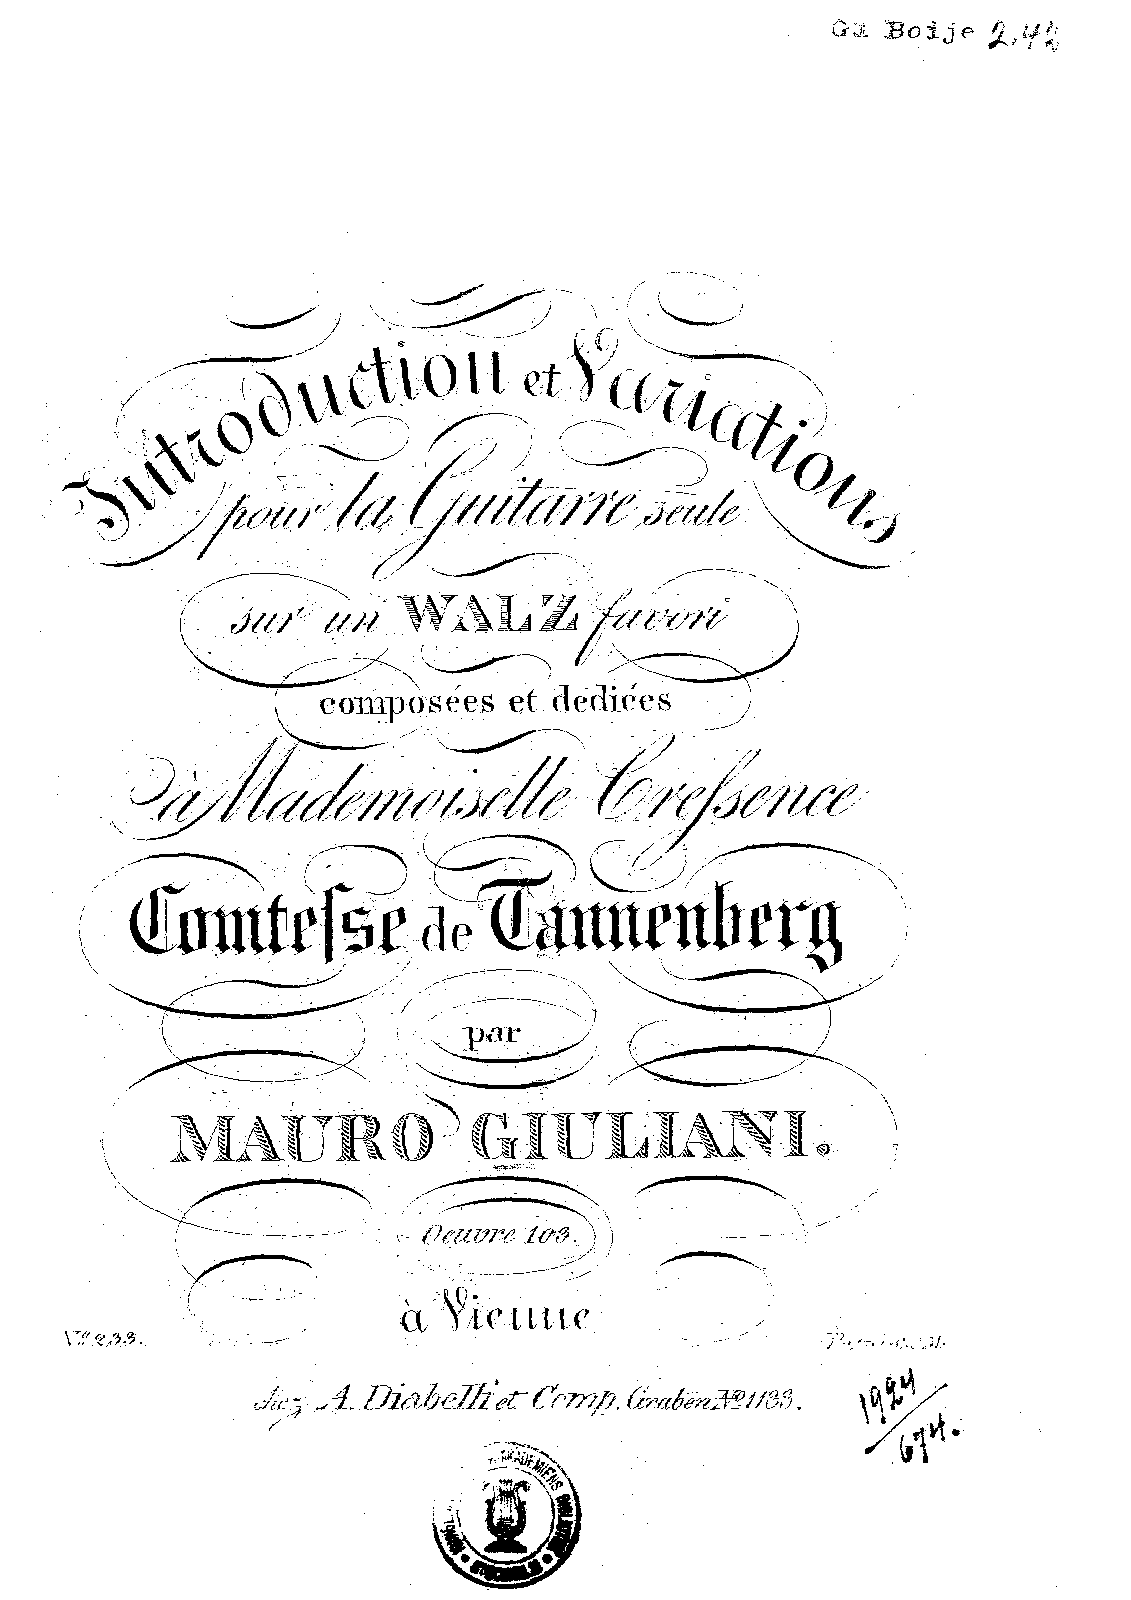 Boije 2,42
Introduction et Variations
pour la Guitarre seule
sur un WALZ favori
composées et dediées
à Mademoiselle Creſsence
Comteſse de Tannenberg
par
MAURO GIULIANI.
Oeuvre 103.
à Vienne
No 233.
chez A. Diabelli et Comp. Graben No 1133.
1924
674.
AKADEMIENS BIBLIOTEK